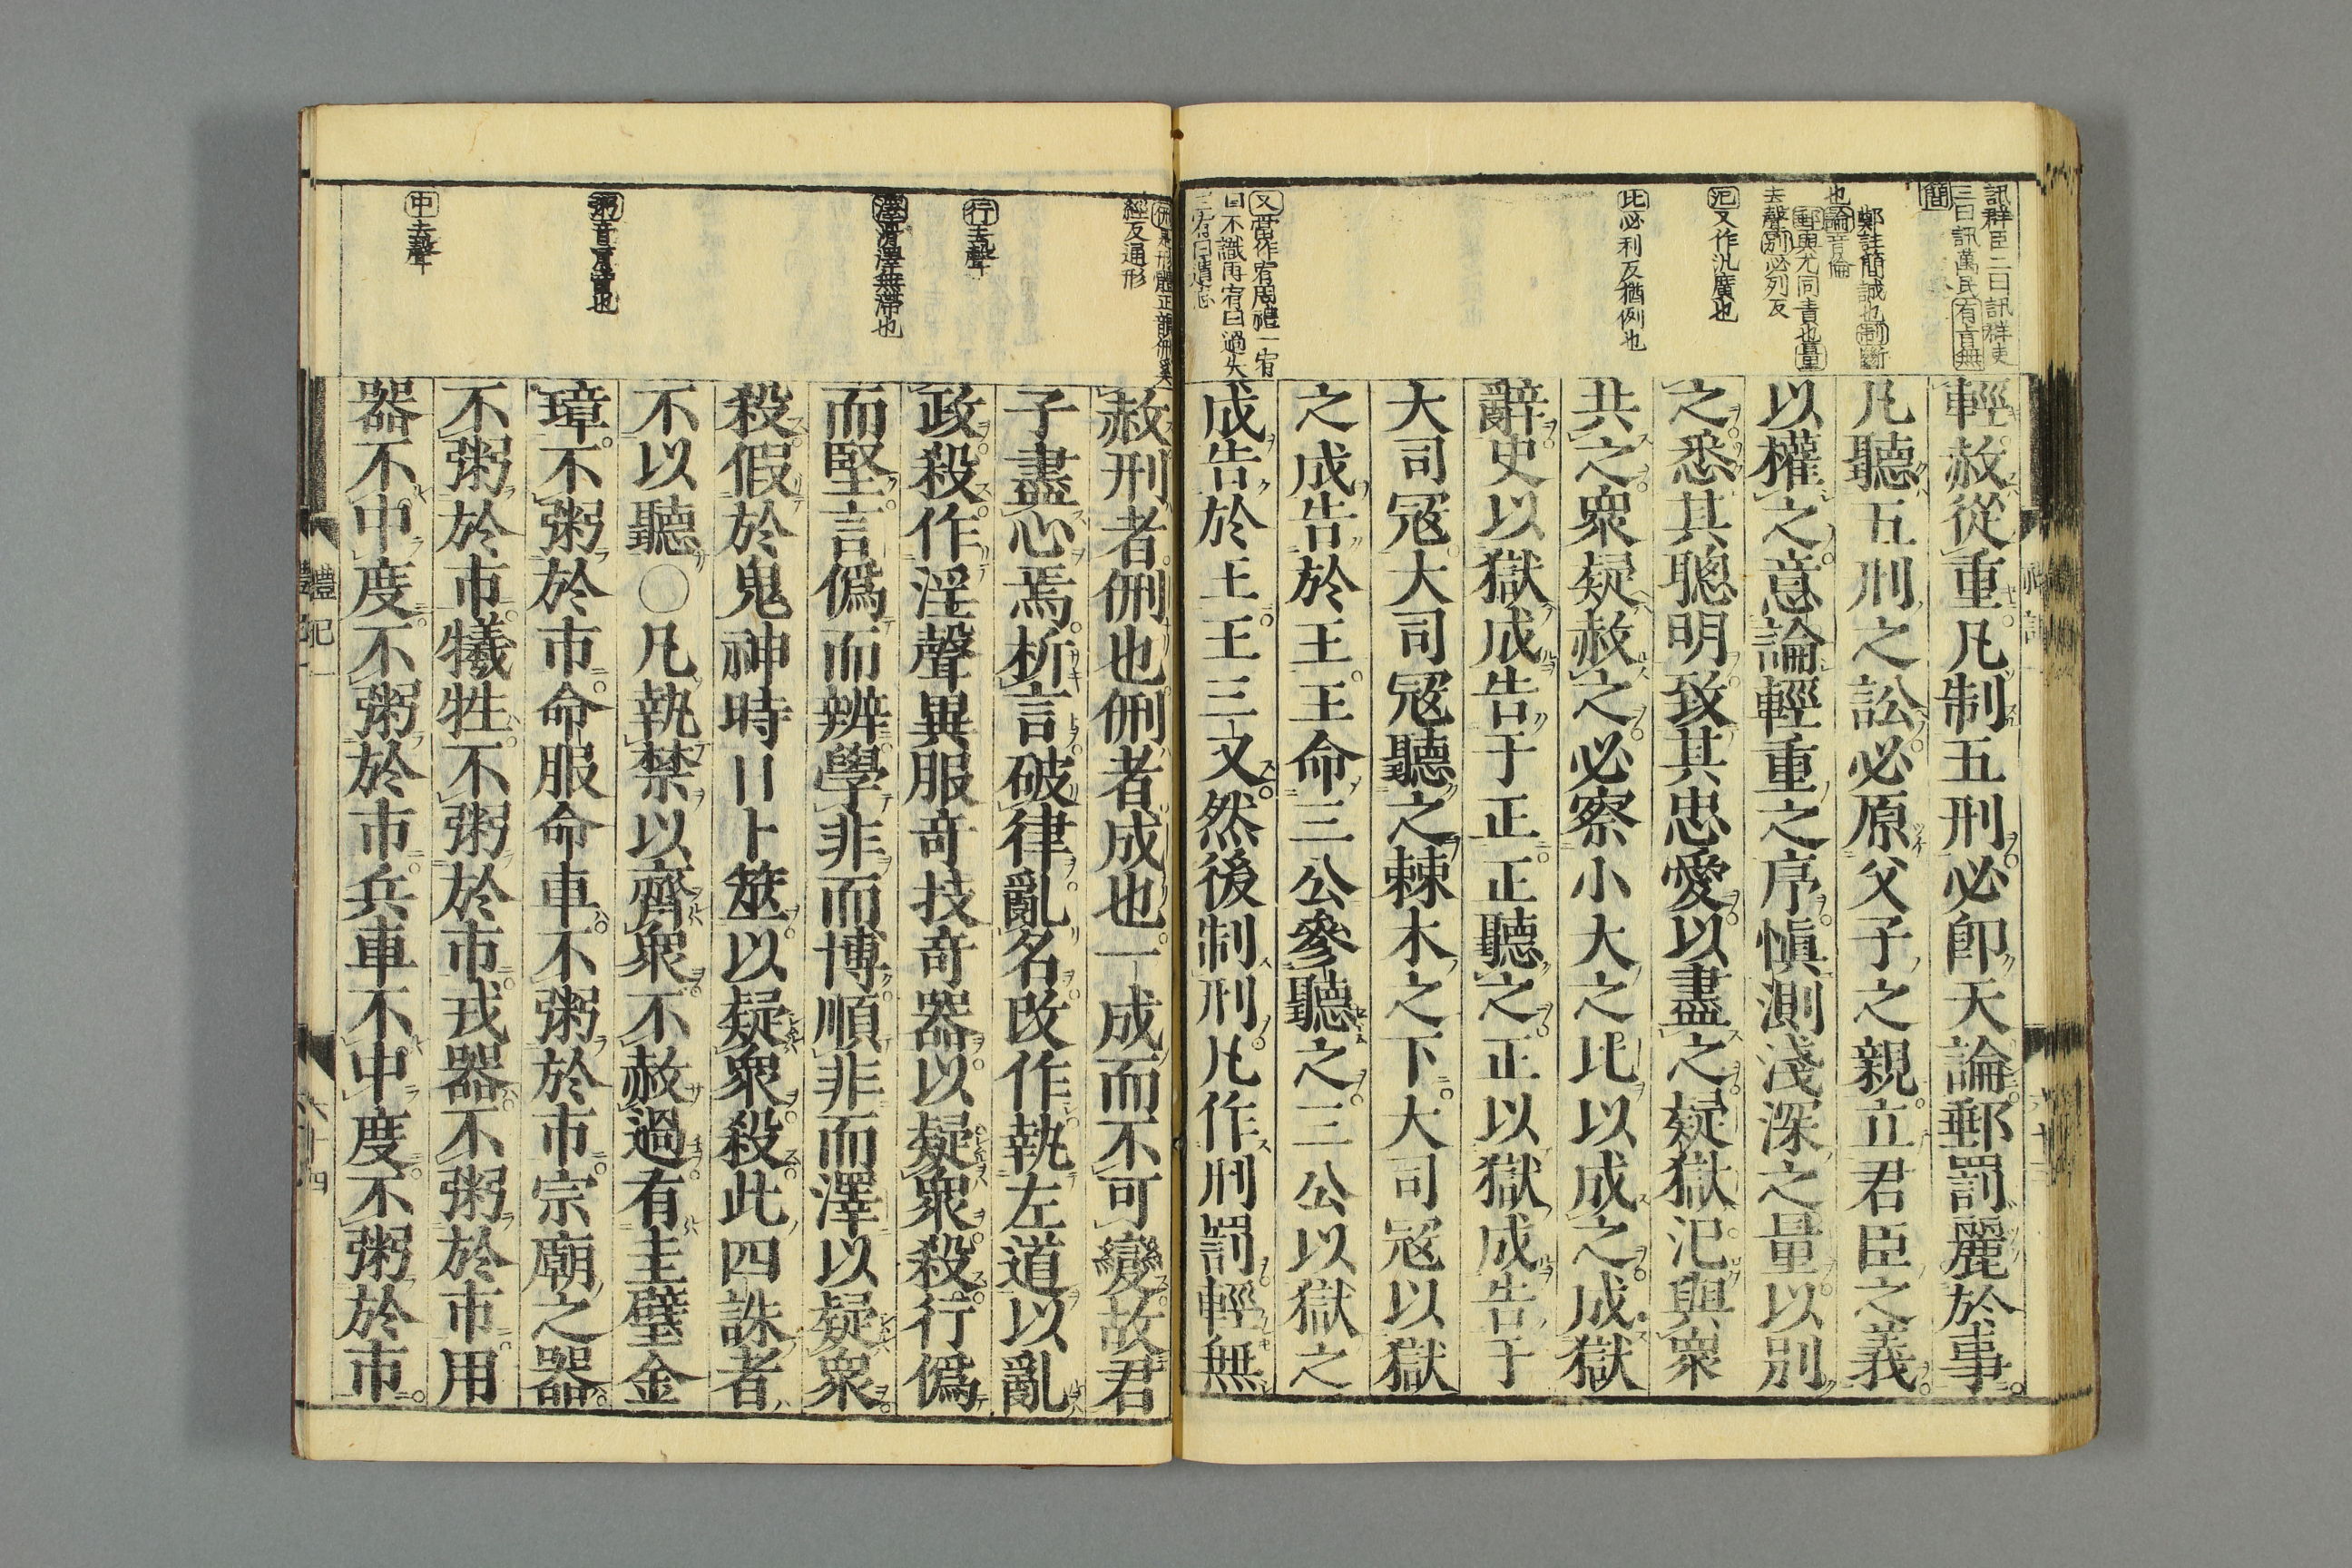 訊群臣二曰訊群吏
三曰訊萬民有旨無
簡
鄭註簡誠也制斷
也論音倫
郵與尤同責也量
去聲別必列反
氾又作汎廣也
比必利反猶例也
又當作宥周禮一宥
曰不識再宥曰過失
三宥曰遺忘
輕赦從重凡制五刑必卽天論郵罰麗於事
凡聽五刑之訟必原父子之親立君臣之義
以權之意論輕重之序愼測淺深之量以別
之悉其聰明致其忠愛以盡之疑獄氾與衆
共之衆疑赦之必察小大之比以成之成獄
辭史以獄成告于正正聽之正以獄成告于
大司冦大司冦聽之棘木之下大司冦以獄
之成告於王王命三公參聽之三公以獄之
成告於王王三又然後制刑凡作刑罰輕無
經反通形
行去聲
澤滑澤無滯也
粥音育賣也
中去聲
赦刑者侀也侀者成也一成而不可變故君
子盡心焉析言破律亂名改作執左道以亂
政殺作淫聲異服奇技奇器以疑衆殺行僞
而堅言僞而辨學非而博順非而澤以疑衆
殺假於鬼神時日卜筮以疑衆殺此四誅者
不以聽○凡執禁以齊衆不赦過有圭璧金
璋不粥於市命服命車不粥於市宗廟之器
不粥於市犧牲不粥於市戎器不粥於市用
器不中度不粥於市兵車不中度不粥於市
禮記一
六十四